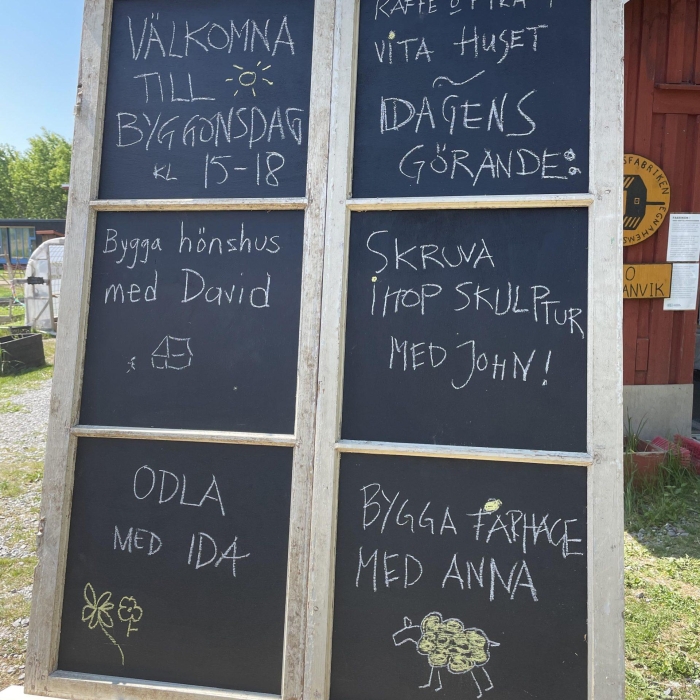 VÄLKOMNA
TILL
BYGGONSDAG
KL 15-18
KAFFE O FIKA I
VITA HUSET
DAGENS
GÖRANDE:
Bygga hönshus
med David
SKRUVA
IHOP SKULPTUR
MED JOHN!
ODLA
MED IDA
BYGGA FÅRHAGE
MED ANNA
SFABRIKEN EGNAHEMS
O
ANVIK